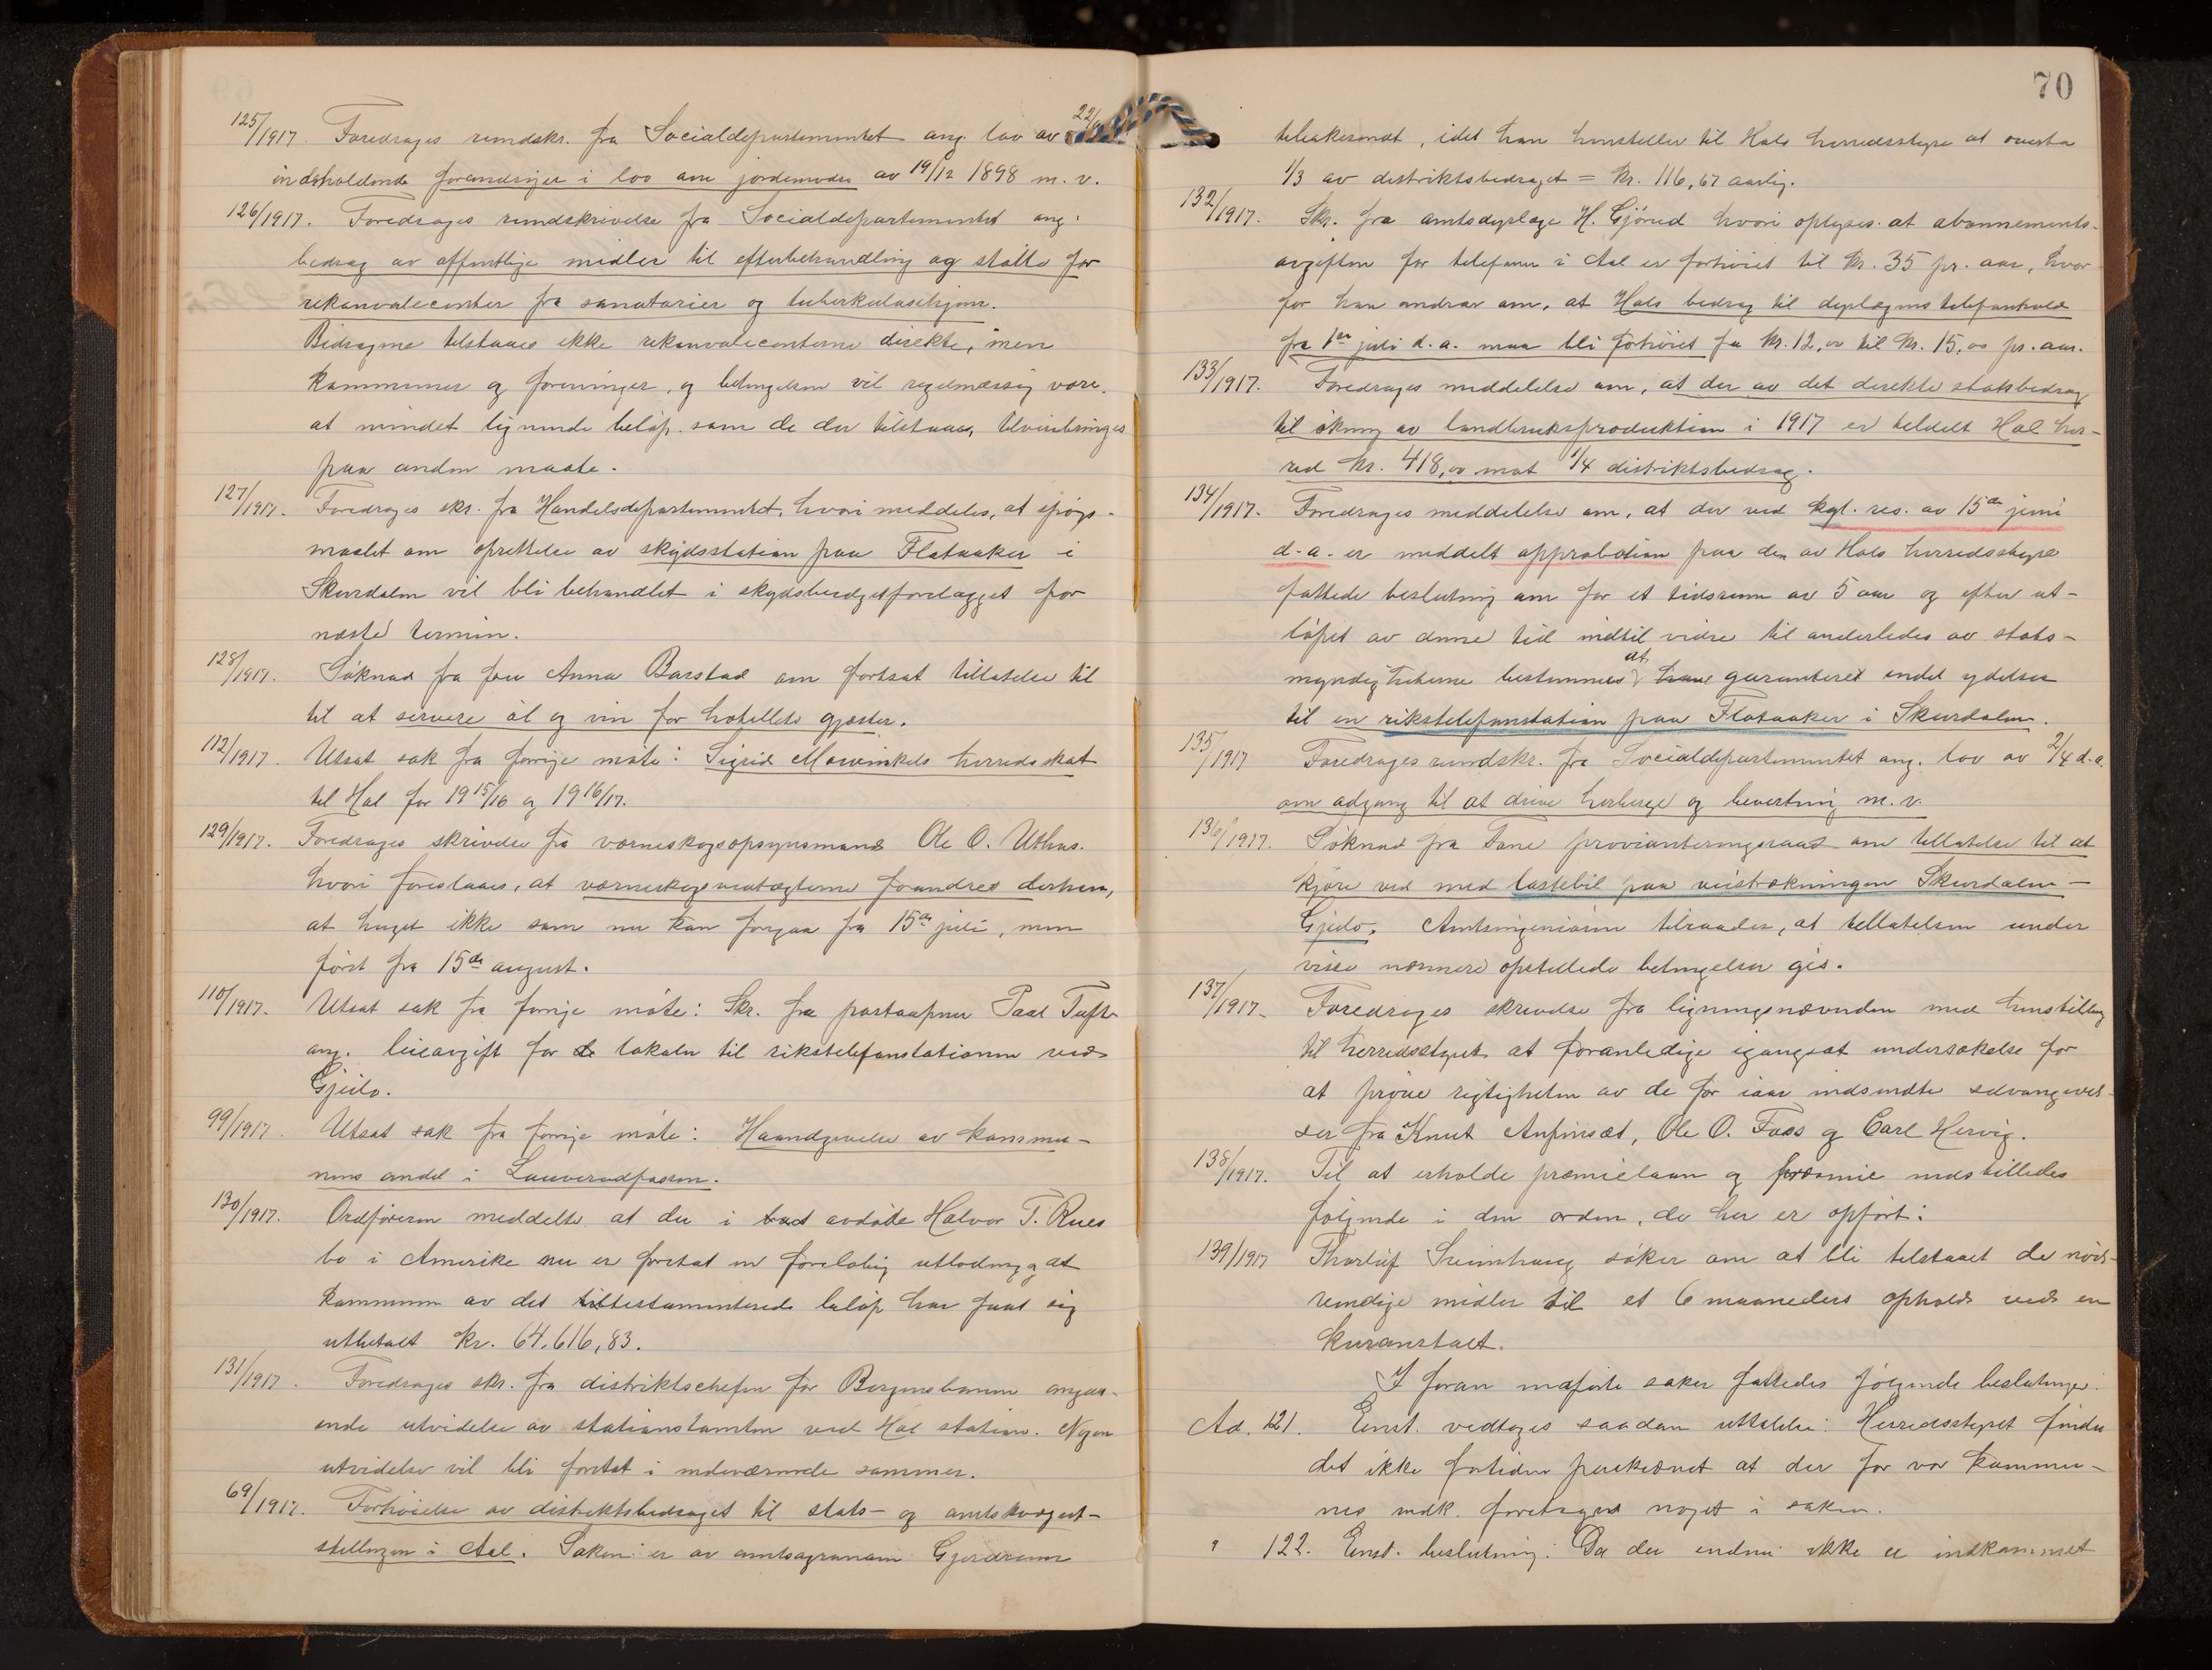 125/1917. Foredrages rundskr. fra Socialdepartementet ang. lov av 22/
indeholdende forandringer i lov om jordemødre av 19/12 1898 m. v.
126/1917. Foredrages rundskrivelse fra Socialdepartementet ang.
bedrag av offentlige midler til efterbehandling og støtte for
rekonvalecenter fra sanatorier og tuberkulosehjem.
Bidragene tilstaaes ikke rekonvalecenterne direkte, men
kommuner og foreninger, og betingelsen vil regelmæssig være,
at mindst lignende beløp som de der tilstaaes, tilveiebringes
paa anden maate.
127/1917. Foredrages skr. fra Handelsdepartementet, hvori meddeles, at spørgs-
maalet om oprettelse av skydsstation paa Flataaker i
Skurdalen vil bli behandlet i skydsbudgetforelægget for
næste termin.
128/1917. Søknad fra fru Anna Barstad om fortsat tillatelse til
til at servere øl og vin for hotellets gjæster.
112/1917. Utsat sak fra forrige møte: Sigrid Mowinkels herredsskat
til Hol for 1915/16 og 1916/17.
129/1917. Foredrages skrivelse fra værneskogsopsynsmand Ole O. Uthus.
hvori foreslaaes, at værneskogsvedtægterne forandres derhen,
at huget ikke som nu kan foregaa fra 15de juli, men
først fra 15de august.
110/1917. Utsat sak fra forrige møte: Skr. fra postaapner Paal Tufte
ang. leieavgift for de lokaler til rikstelefonstationen ved
Gjeilo.
99/1917. Utsat sak fra forrige møte: Haandgivelse av kommu-
nens andel i Lauverudfossen.
130/1917. Ordføreren meddelte at der i avdøde Halvor T. Rues
bo i Amerika nu er foretat en foreløbig utlodning og at
kommunen av det tiltestamenterede beløp har faat sig
utbetalt kr. 64.616,83.
131/1917. Foredrages skr. fra distriktschefen for Bergensbanen angaa-
ende utvidelse av stationstomten ved Hol station. Nogen
utvidelse vil bli foretat i indeværende sommer.
69/1917. Forhøielse av distriktsbedraget til stats- og amtskvægut-
stillingen i Aal. Saken er av amtsagronom Gjerdrum
70
tilbakesendt, idet han henstiller til Hols herredsstyre at overta
1/3 av distriktsbedraget = kr. 116,67 aarlig.
132/1917. Skr. fra amtsdyrlæge H. Gjörud hvori oplyses at abonnements-
avgiften for telefonen i Aal er forhøiet til kr. 35 pr. aar, hvor-
for han andrar om, at Hols bedrag til dyrlægens telefonhold
fra 1ste juli d. a. maa bli forhøiet fra kr. 12,00 til kr. 15,00 pr. aar.
133/1917. Foredrages meddelelse om, at der av det direkte statsbedrag
til økning av landbruksproduktion i 1917 er tildelt Hol her-
red kr. 418,00 mot 1/4 distriktsbedrag.
134/1917. Foredrages meddelelse om, at der ved kgl. res. av 15de juni
d. a. er meddelt approbation paa den av Hols herredsstyre
fattede beslutning om for et tidsrum av 5 aar og efter ut-
løpet av denne tid indtil videre til anderledes av stats-
myndigheterne bestemmes at garanteret endel ydelser
til en rikstelefonstation paa Flataaker i Skurdalen.
135/1917 Foredrages rundskr. fra Socialdepartementet ang. lov av 2/4 d. a.
om adgang til at drive herberge og bevertning m. v.
136/1917. Søknad fra Fane provianteringsraad om tillatelse til at
kjøre ved med lastebil paa veistrækningen Skurdalen –
Gjeilo. Amtsingeniøren tilraader, at tillatelsen under
visse nærmere opstillede betingelser gis.
137/1917. Foredrages skrivelse fra ligningsnævnden med henstilling
til herredsstyret at foranledige igangsat undersøkelse for
at prøve rigtigheten av de for iaar indsendte selvangivel-
ser fra Knut Anfinset, Ole O. Foss og Carl Hervig.
138/1917. Til at erholde præmielaan og præmie indstilledes
følgende i den orden, de her er opført:
139/1917 Thorleif Sveinhaug søker om at bli tilstaaet de nød-
vendige midler til et 6 maaneders ophold ved en
kuranstalt.
I foran indførte saker fattedes følgende beslutninger:
Ad. 121. Enst. vedtages saadan uttalelse: Herredsstyret finder
det ikke fortiden paakrævet at der for vor kommu-
nes vedk. foretages noget i saken.
" 122. Enst. beslutning: Da der endnu ikke er indkommet